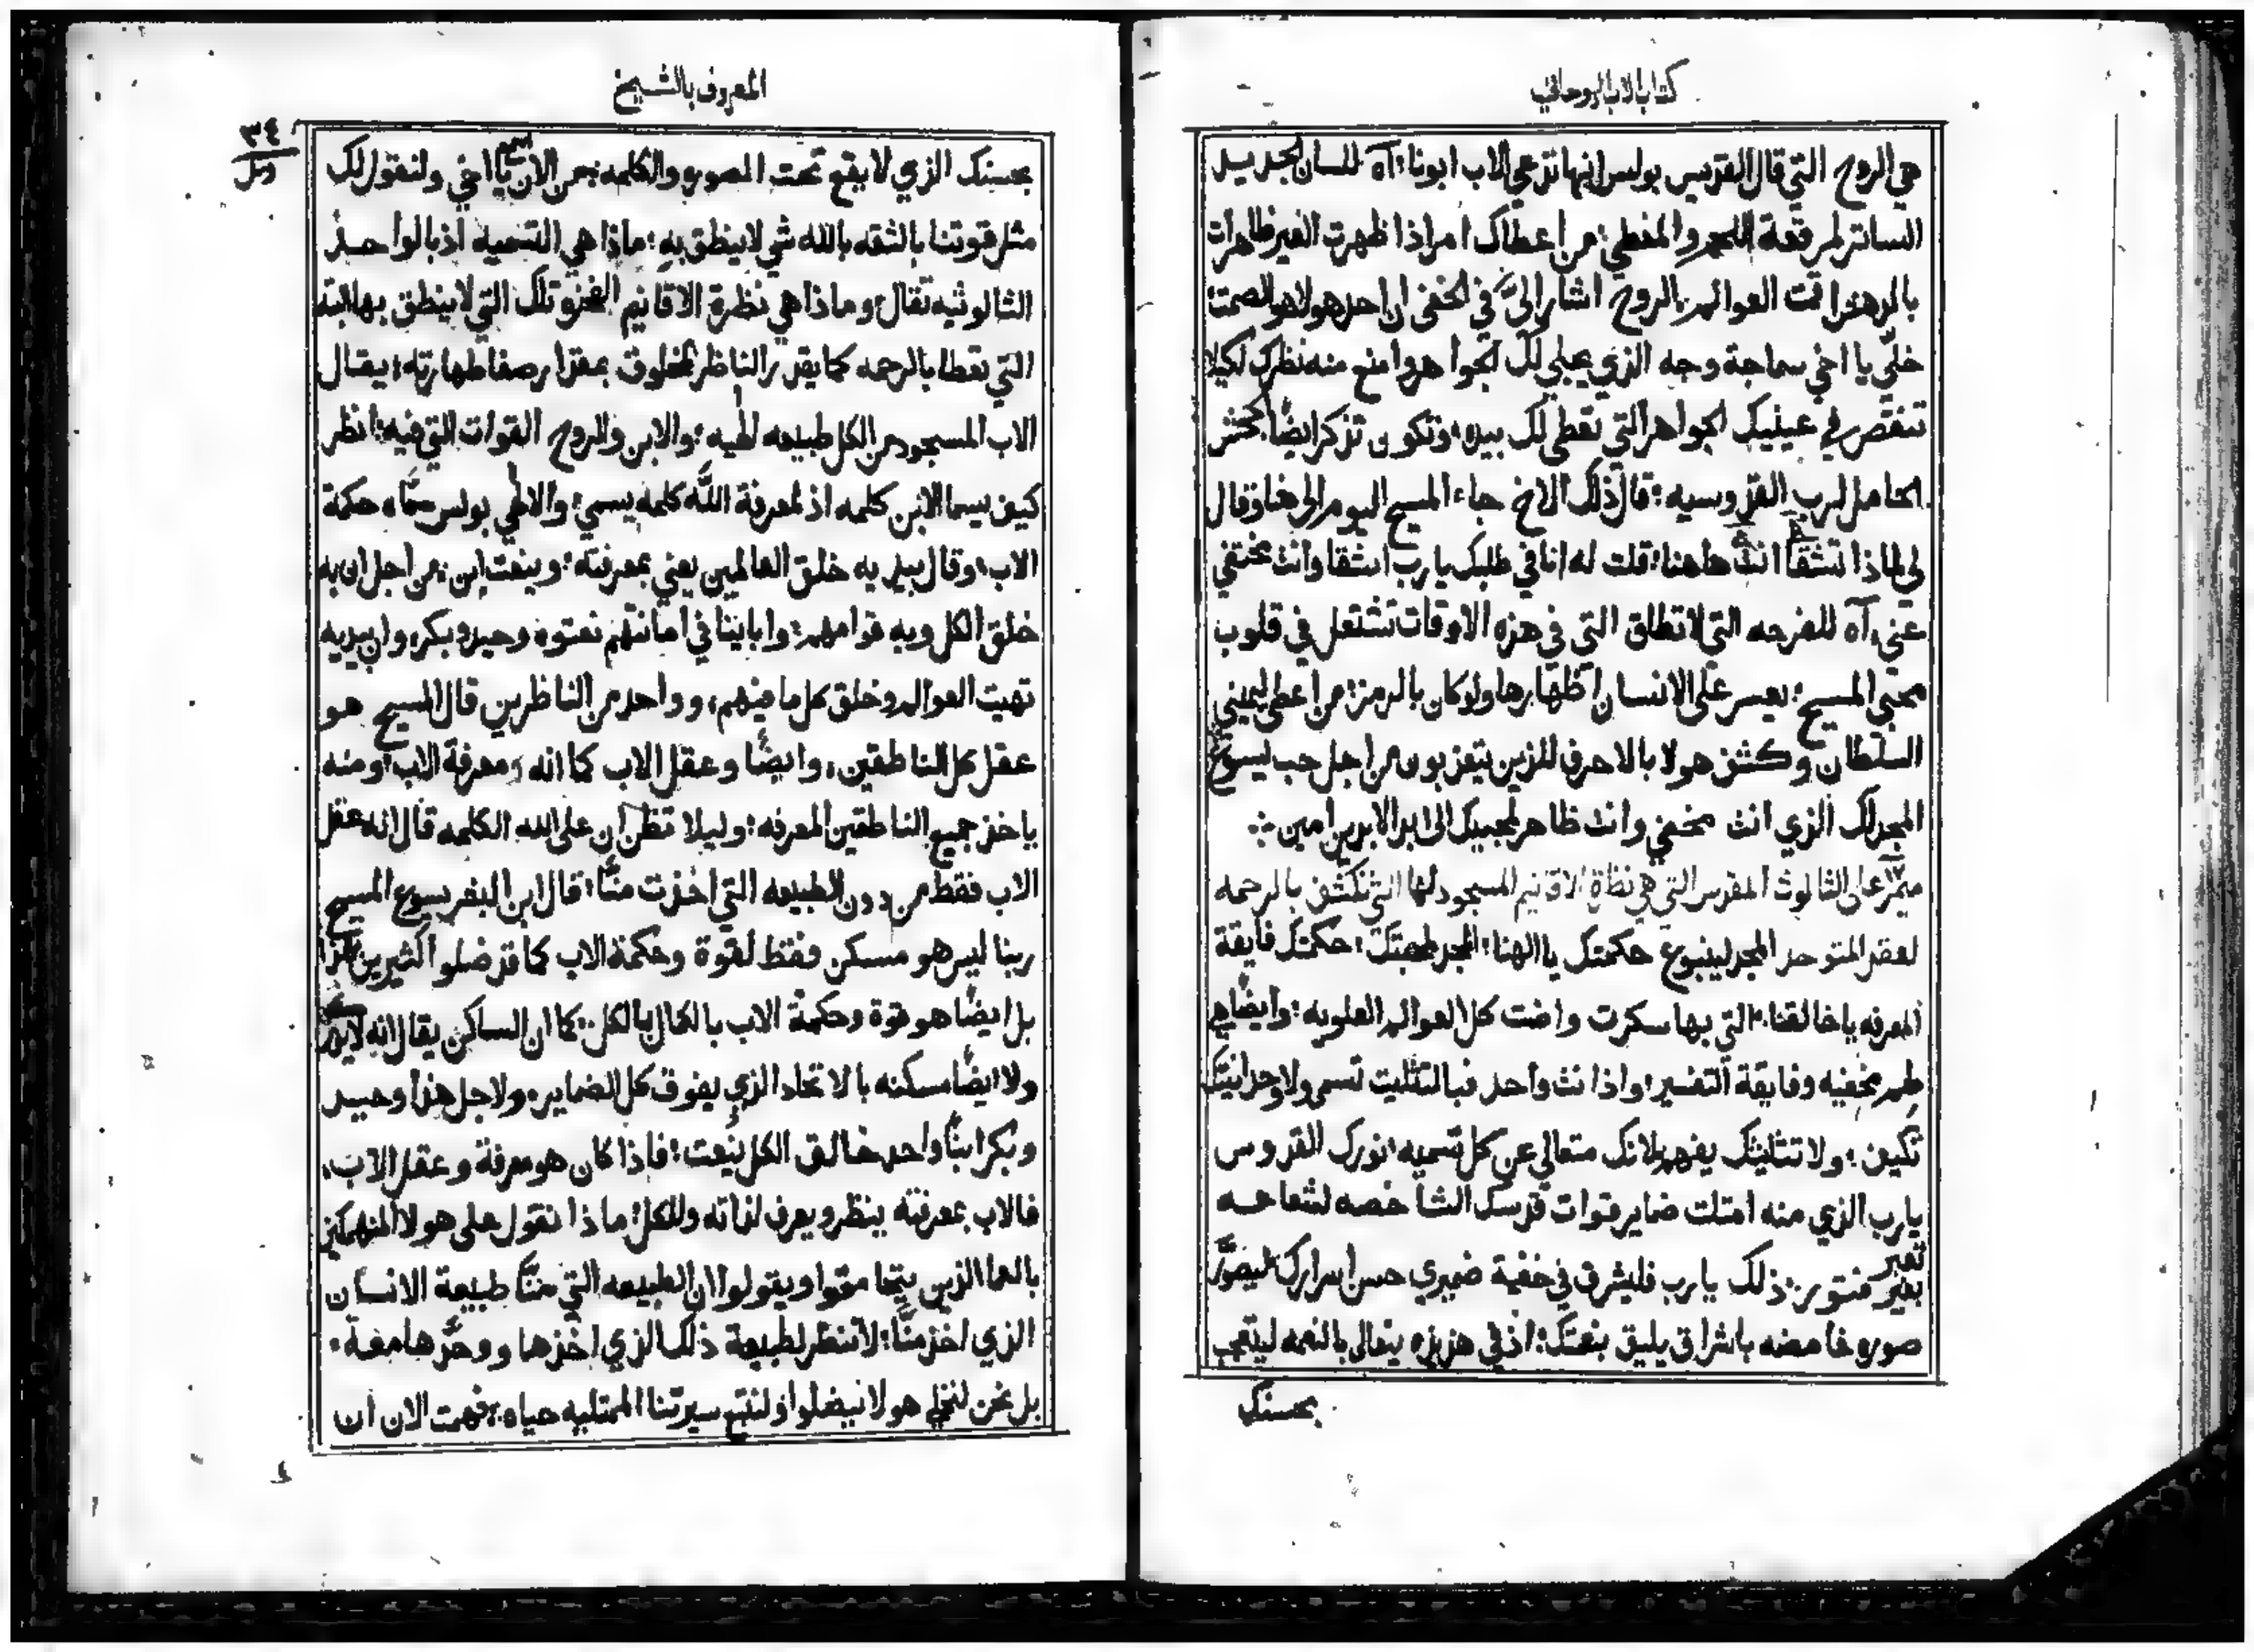 كتاب الاب الروحاني
هي الروح التي قال القديس بولس انها تدعي الاب ابونا؛ آه للسان الجديد
الساتر لمرقعة اللحم والمغطي؛ من اعطاك امر اذا ظهرت الغير ظاهرات
بالرمز اقمت العوالم بالروح اشار اليّ في الخفي ان احد هولا هو الصمت؛
خلّي يا اخي سماجة وجه الذي يجلي لك الجواهر وامنع منه نظرك لكيلا
تنقص في عينيك الجواهر التي تعطي لك بيده؛ وتكون تذكر ايضًا الجحش
الحامل لرب القدوسيه؛ قال ذلك الاخ جاء المسيح اليوم الي هنا وقال
لي لماذا تشقا انت هاهنا؛ قلت له انا في طلبك يا رب اشقا وانت مختفي
عني، آه للفرحه التي لا تطاق التي في هذه الاوقات تشتعل في قلوب
محبي المسيح؛ يعسر علي الانسان اظهارها ولو كان بالرمز؛ من اعطي ليميني
السلطان وكشف هولا بالاحرف للذين يتعذبون من اجل حب ليسوع
المجد لك الذي انت مخفي وانت ظاهر لمحبيك الي ابد الابدين امين
ميمر علي الثالوث المقدس التي هي نظرة الاقانيم المسجود لها التي تنكشف بالرحمه
لعقد المتوحد المجد لينبوع حكمتك يا الهنا؛ المجد لمحبتك؛ حكمتك فايقة
المعرفه يا خالقنا؛ التي بها سكرت واضت كل العوالم العلويه؛ وايضًا هي
لهم مخفيه وفايقة التفسير؛ واذ انت واحد فبالتثليت تسمي ولا وحدانيتك
تكيف؛ ولا تثليثك يفهم لانك متعالي عن كل تسميه؛ نورك القدوس
يا رب الذي منه امتلت ضماير قوات قدسك الشاخصه لشعاعه
بغير فتور؛ ذلك يا رب فليشرق في خفية ضميري حسن اسرارك ليصوّر
صوره غامضه باشراق يليق بنعتك؛ اذ في هذيذه يتعالي بالنعمه ليتعجب
بحسنك
المعروف بالشيخ
٣٤
بحسنك الذي لا يقع تحت الصوره والكلمه؛ من الان يا اخي ولنقول لك
مثل قوتنا بالثقه بالله شي لا ينطق به؛ ماذا هي التسميه اذ بالواحد
الثالوثيه تقال؛ وماذا هي نظرة الاقانيم تلك التي لا ينطق بها البته
التي تعطا بالرحمه كما يقدر الناظر المخلوق بمقدار صفا طهارته؛ يقال
الاب المسجود من الكل طبيعه الهيه؛ والابن والروح القوات التي فيه؛ انظر
كيف يسما الابن كلمه اذ لمعرفة الله كلمه يسمي؛ والالهي بولس سمّاه حكمة
الاب؛ وقال بيديه خلق العالمين يعني بمعرفته؛ وينعت ابن؛ من اجل ان به
خلق الكل وبه قوامهم؛ وابايينا في امانتهم نعتوه وحيد وبكر؛ وان بيديه
تهيت العوالم وخلق كل ما فيهم؛ وواحد من الناظرين قال المسيح هو
عقل كل الناطقين، وايضًا وعقل الاب كما انه معرفة الاب؛ ومنه
ياخذ جميع الناطقين المعرفه؛ وليلا تظن ان علي الله الكلمه قال انه عقل
الاب فقط من دون الطبيعه التي اخذت منّا؛ قال ابن البشر يسوع المسيح
ربنا ليس هو مسكن فقط لقوة وحكمة الاب كما قد ضلوا كثيرين بهذا
بل ايضًا هو قوة وحكمة الاب بالكمال بالكل؛ كما ان الساكن يقال انه لا يدرك
ولا ايضًا مسكنه بالاتحاد الذي يفوق كل الضماير؛ ولاجل هذا وحيد
وبكر ابنًا واحد خالق الكل نُيعت؛ فاذا كان هو معرفة وعقل الاب،
فالاب بمعرفته ينظر ويعرف لذاته وللكل؛ ماذا نقول علي هولا المنهمكين
بالعما الذين يتحامقوا ويقولوا ان الطبيعه التي منّا طبيعة الانسان
الذي اخذ منّا؛ لا تنظر لطبيعة ذلك الذي اخذها ووحّدها معه؛
بل نحن لنخلي هولا ان يضلوا ولنتبع سيرتنا الممتليه حياه؛ فهمت الان ان